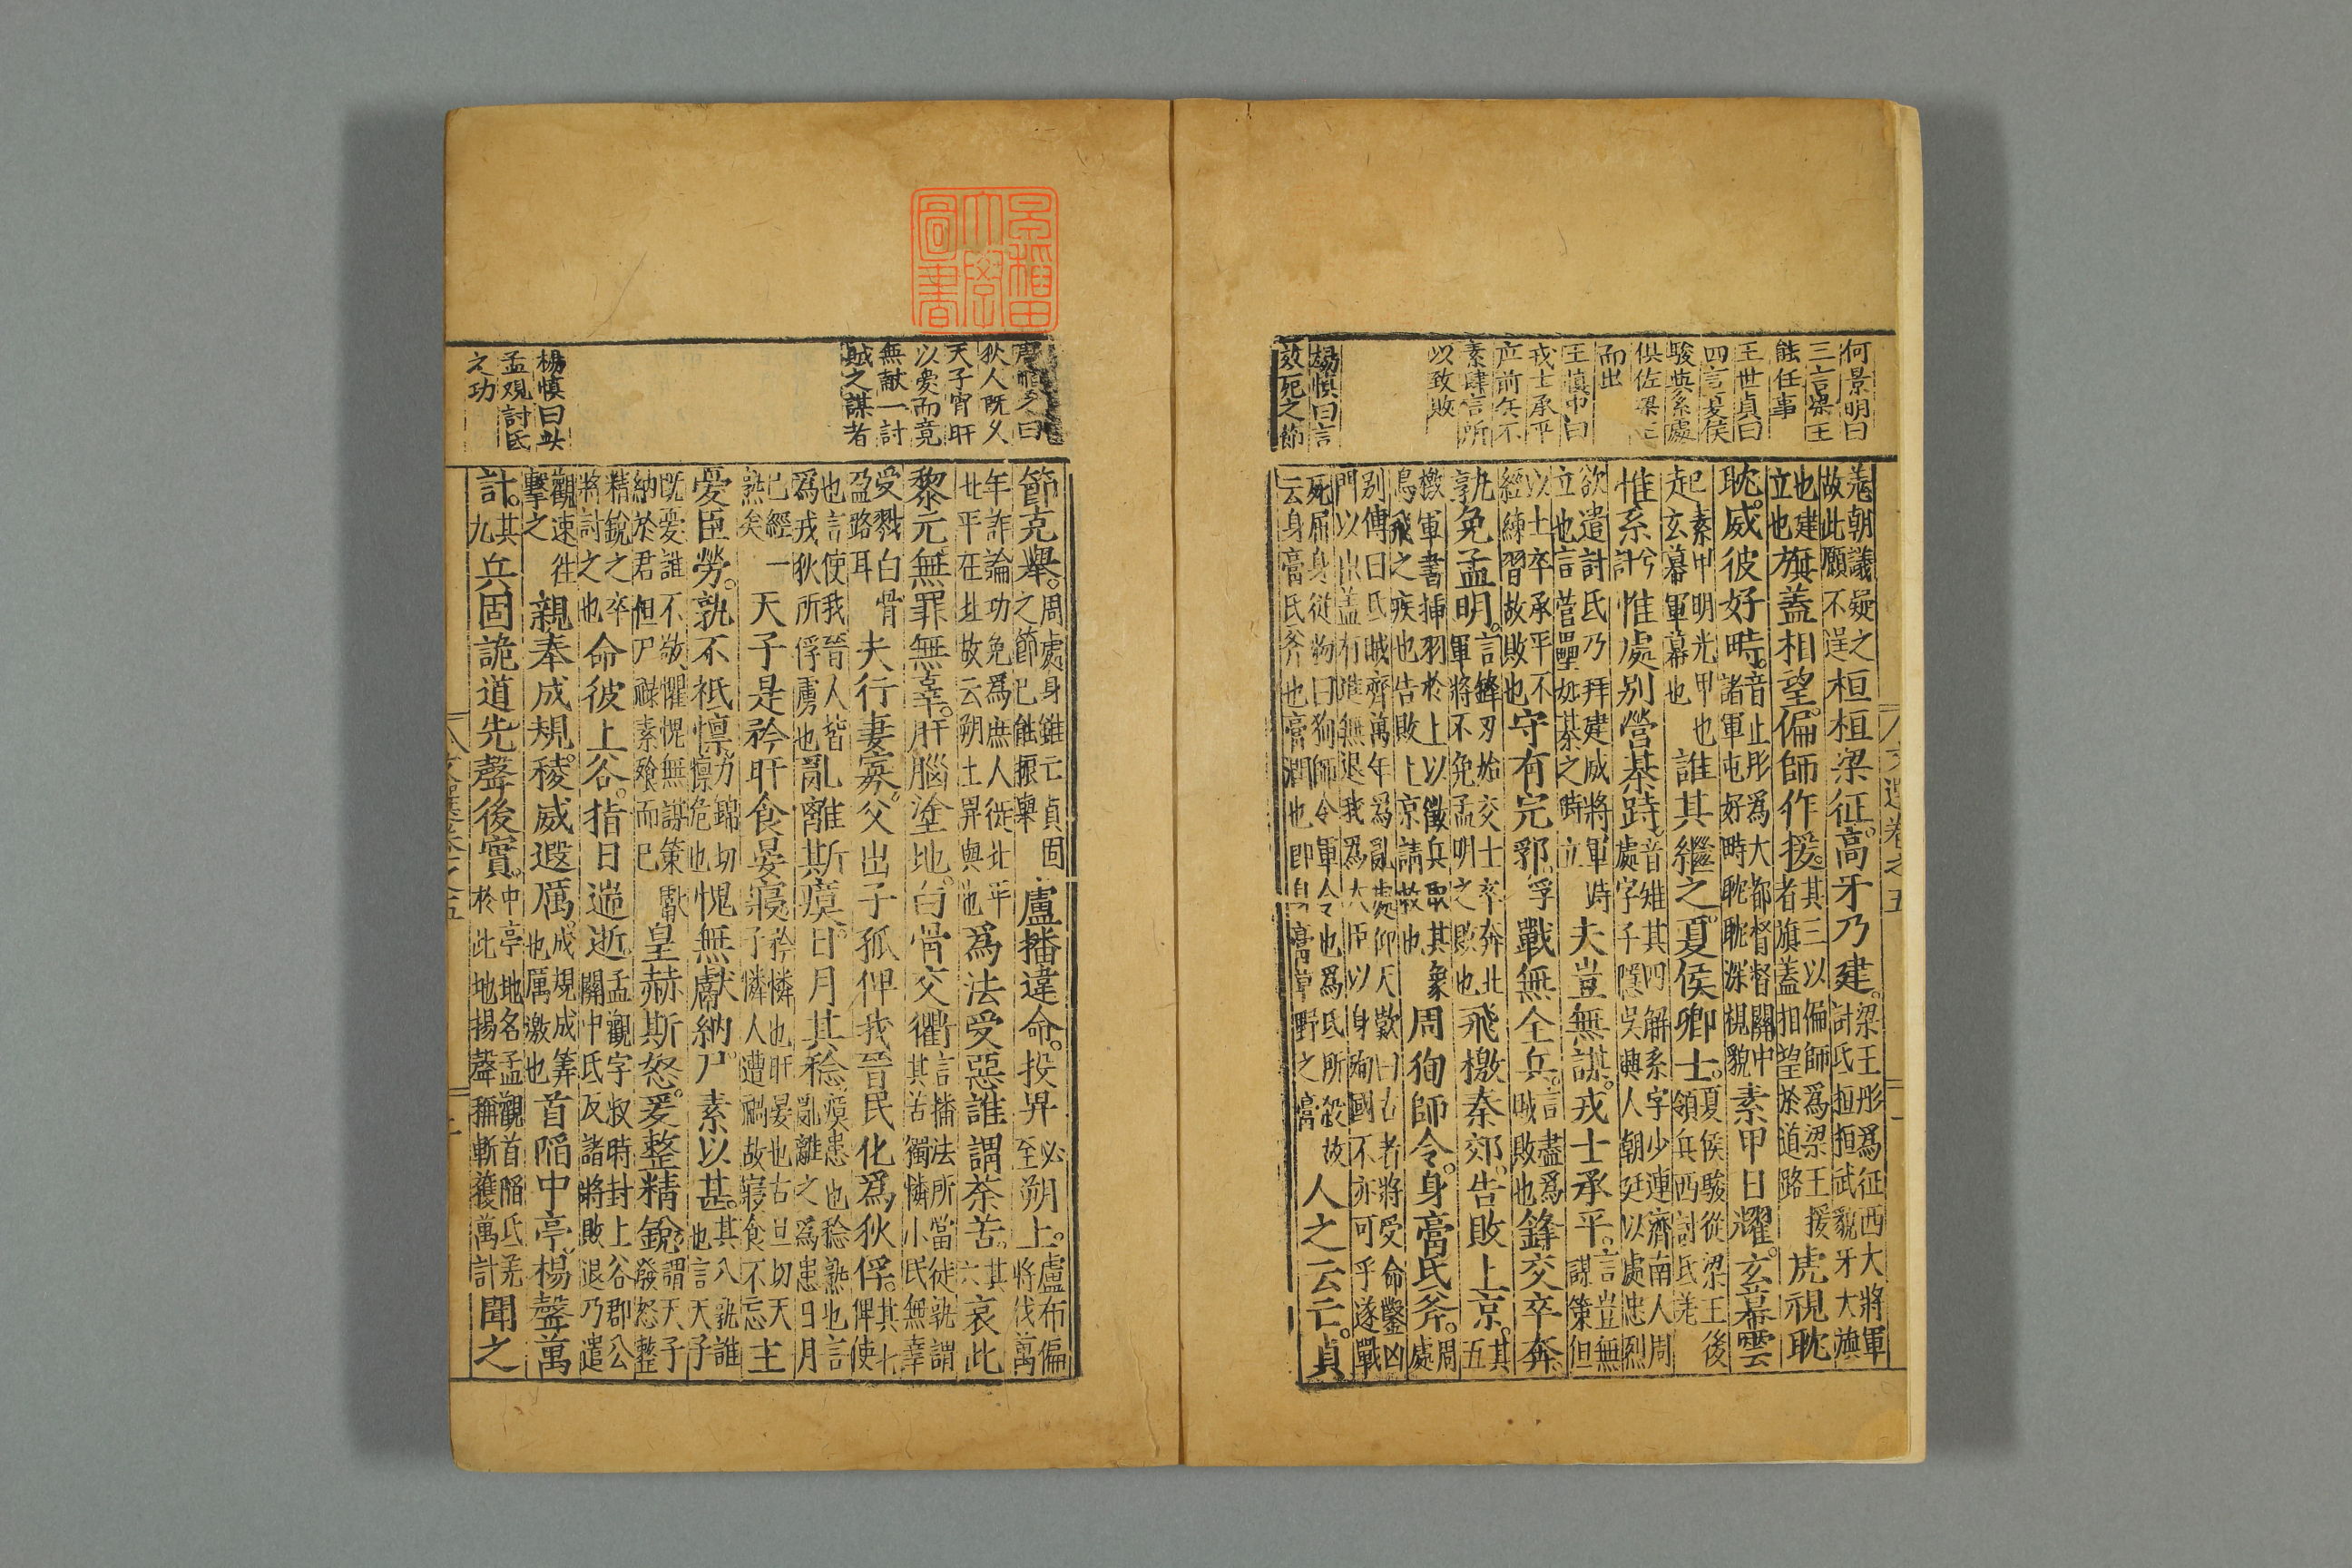 何景明曰
三言梁王
能任事
王世貞曰
四言夏侯
駿與系處
俱佐梁王
而出
王慎中曰
戎士承平
立前矣不
素肄信所
以致敗
楊慎曰言
效死之節
羗朝議疑之
故此願不逞桓桓梁征高牙乃建梁王彤爲征西大將軍
討氐桓桓武貌牙大旗
也建
立也旗蓋相望偏師作援其三以偏師爲梁王援
者旗蓋相望於道路虎視眈
眈威彼好畤音止彤爲大都督督關中
諸軍屯好畤眈眈深視貌素甲日耀玄幕雲
起素甲明光甲也
玄幕軍幕也誰其繼之夏侯卿士夏侯駿從梁王後
領兵西討氐羗
惟系兮
計惟處别營棊跱音雉其四解系字少連濟南人周
處字子隱吳興人朝廷以處忠烈
欲遣討氐乃拜建威將軍時
立也言營壘如棊之時立夫豈無謀戎士承平言豈無
謀策但
以士卒承平不
經練習故敗也守有完郛孚戰無全兵言盡爲
賊敗也鋒交卒奔
孰免孟明言鋒刃始交士卒奔北
軍將不免孟明之敗也飛檄秦郊告敗上京其
五
檄軍書揷羽於上以徵兵取其象
鳥飛之疾也告敗上京請救也周狥師令身膏氐斧周
處
别傳曰氐賊齊萬年爲亂處仰天歎曰古者將受命鑿凶
門以出蓋有進無退我爲大臣以身殉國不亦可乎遂戰
死扄身從物曰狥師令軍令也爲氐所殺故
云身膏氐斧也膏潤也即身膏草野之膏人之云亡貞
文選卷之五
早稻田大學圖書
周恒之曰
狄人既乂
天子宵旰
以憂而竟
無献一討
賊之謀者
楊慎曰此
孟观討氐
之功
節克舉周處身雖亡貞固
之節巳能振舉盧播違命投畀必
至朔上盧布偏
將伐萬
年詐論功免爲庶人徙北平
北平在北故云朔土畀與也爲法受惡誰謂荼苦其
六哀此
黎元無罪無辜肝腦塗地白骨交衢言播法所當徒孰謂
其苦獨憐小民無辜
受戮白骨
盈路耳夫行妻寡父出子孤俾我晉民化爲狄俘其七
俾使
也言使我晉人皆
爲戎狄所俘虜也亂離斯瘼日月其稔瘼患也稔熟也言
亂離之爲患日月
巳經一
熟矣天子是矜旰食晏寢矜憐也旰晏也古旦切天主
子憐人遭禍故寢食不忘
爰臣勞孰不祇懍力錦切
懍危也愧無獻納尸素以甚其八孰誰
也言天子
既憂誰不敬懼愧無謀策獻
納於君但尸祿素飱而巳皇赫斯怒爰整精銳謂天子
發怒整
精銳之卒
將討之也命彼上谷指日遄逝孟觀字叔時封上谷郡公
關中氐反諸將敗退乃遣
觀速往
擊之親奉成規稜威遐厲成規成筭
也厲激也首陷中亭楊聲萬
計其
九兵固詭道先聲後實中亭地名孟觀首陷氐羌
於此地揚聲稱斬獲萬計聞之